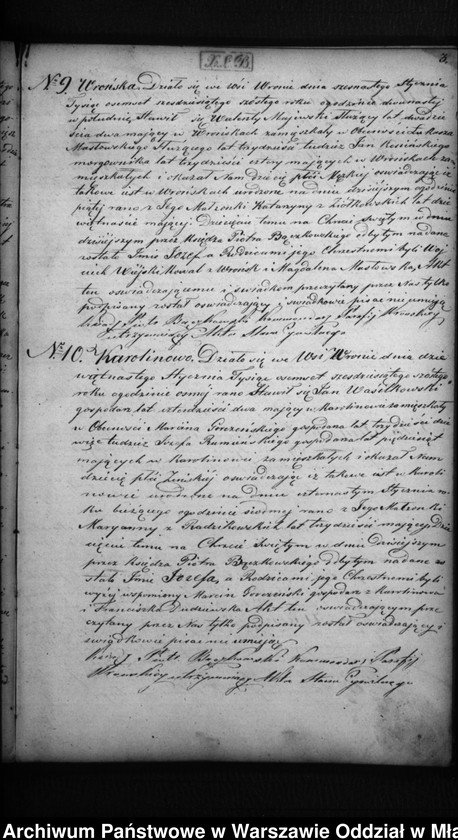 F.C.B.
3.
No 9 Wrońska. Działo się we wsi Wronie dnia szesnastego Stycznia
Tysiąc osiemset sześdziesiątego szóstego roku o godzinie dwunastej
w południe Stawił się Walenty Majewski Służący lat dwadzie
ścia dwa mający w Wrońskach zamieszkały w Obecności Łukasza
Masłowskiego Służącego lat trzydzieści tudzież Jan
lat trzydzieści cztery mających w Wrońskach za
mieszkałych i okazał Nam dziecię płci Męzkiej oświadczając iż
takowe jest w Wrońskach urodzone na dniu dzisiejszym o godzinie
piątej rano z Jego Małżonki Katarzyny z Ziółkowskich lat dzie
więtnaście mającej. Dziecięciu temu na Chrzcie Świętym w dniu
dzisiejszym przez Księdza Piotra Bączkowskiego odbytym nadane
zostało Imie Józef a Rodzicami jego Chrzestnemi byli Woj
ciech Wójski Kowal z Wrońsk i Magdalena Masłowska, Akt
ten oświadczającemu i świadkom przeczytany przez Nas tylko
podpisany został oświadczający i świadkowie pisać nieumieją
Piotr Bączkowski Parafji Wronskiej
Utrzymujący Akta Stanu Cywilnego
No 10. Karolinowo. Działo się we Wsi Wronie dnia dzie
więtnastego Stycznia Tysiąc osiemset sześdziesiątego szóstego
roku o godzinie ósmej rano Stawił się Jan Wasilkowski
gospodarz lat czterdzieści dwa mający w Karolinowie zamieszkały
w Obecności Marcina Gorzeńskiego gospodarza lat trzydzieści dzie
więć tudzież Józefa Rumińskiego gospodarza lat pięćdziesiąt
mających w Karolinowie zamieszkałych i okazał nam
dziecię płci Żeńskiej oświadczając iż takowe jest w Karoli
nowie urodzone na dniu czternastym Stycznia ro
ku bieżącego o godzinie siódmej rano z Jego Małżonki
Maryanny z Radzikowskich lat trzydzieści mającej Dzie
cięciu temu na Chrzcie Świętym w dniu Dzisiejszym
przez Księdza Piotra Bączkowskiego odbytym nadane zo
stało Imie Józefa, a Rodzicami jego Chrzestnemi byli
wyżej wspomniony Marcin Gorzeński gospodarz z Karolinowa
i Franciszka Dudzińska Akt ten oświadczającym prze
czytany przez Nas tylko podpisany został oświadczający i
świadkowie pisać nie umieją
Piotr Bączkowski Parafji
Wronskiej utrzymujący Akta Stanu Cywilnego
Archiwum Państwowe w Warszawie Oddział w Mła